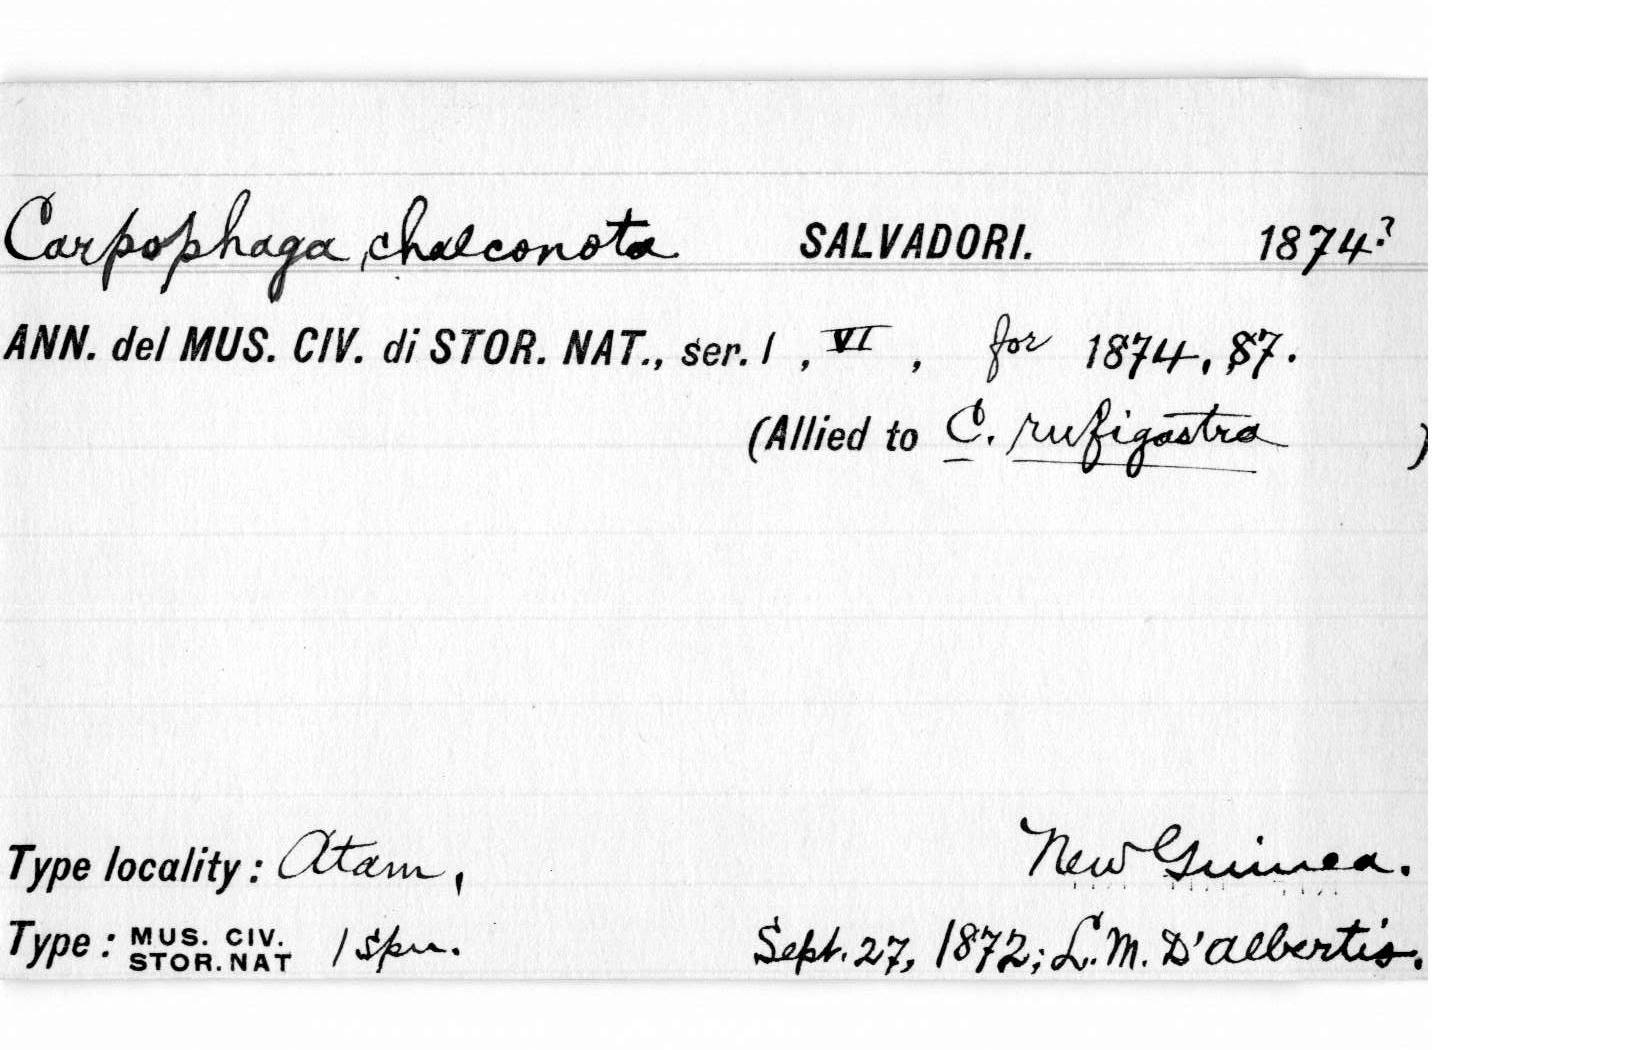 Carpophaga chalconota SALVADORI. 1874?
ANN. del MUS. CIV. di STOR. NAT., ser. 1 , VI , for 1874, 87.
(Allied to C. rufigastra )
Type locality: Atam, New Guinea.
Type: MUS. CIV. STOR. NAT 1 spn. Sept. 27, 1872; L. M. D'Albertis.